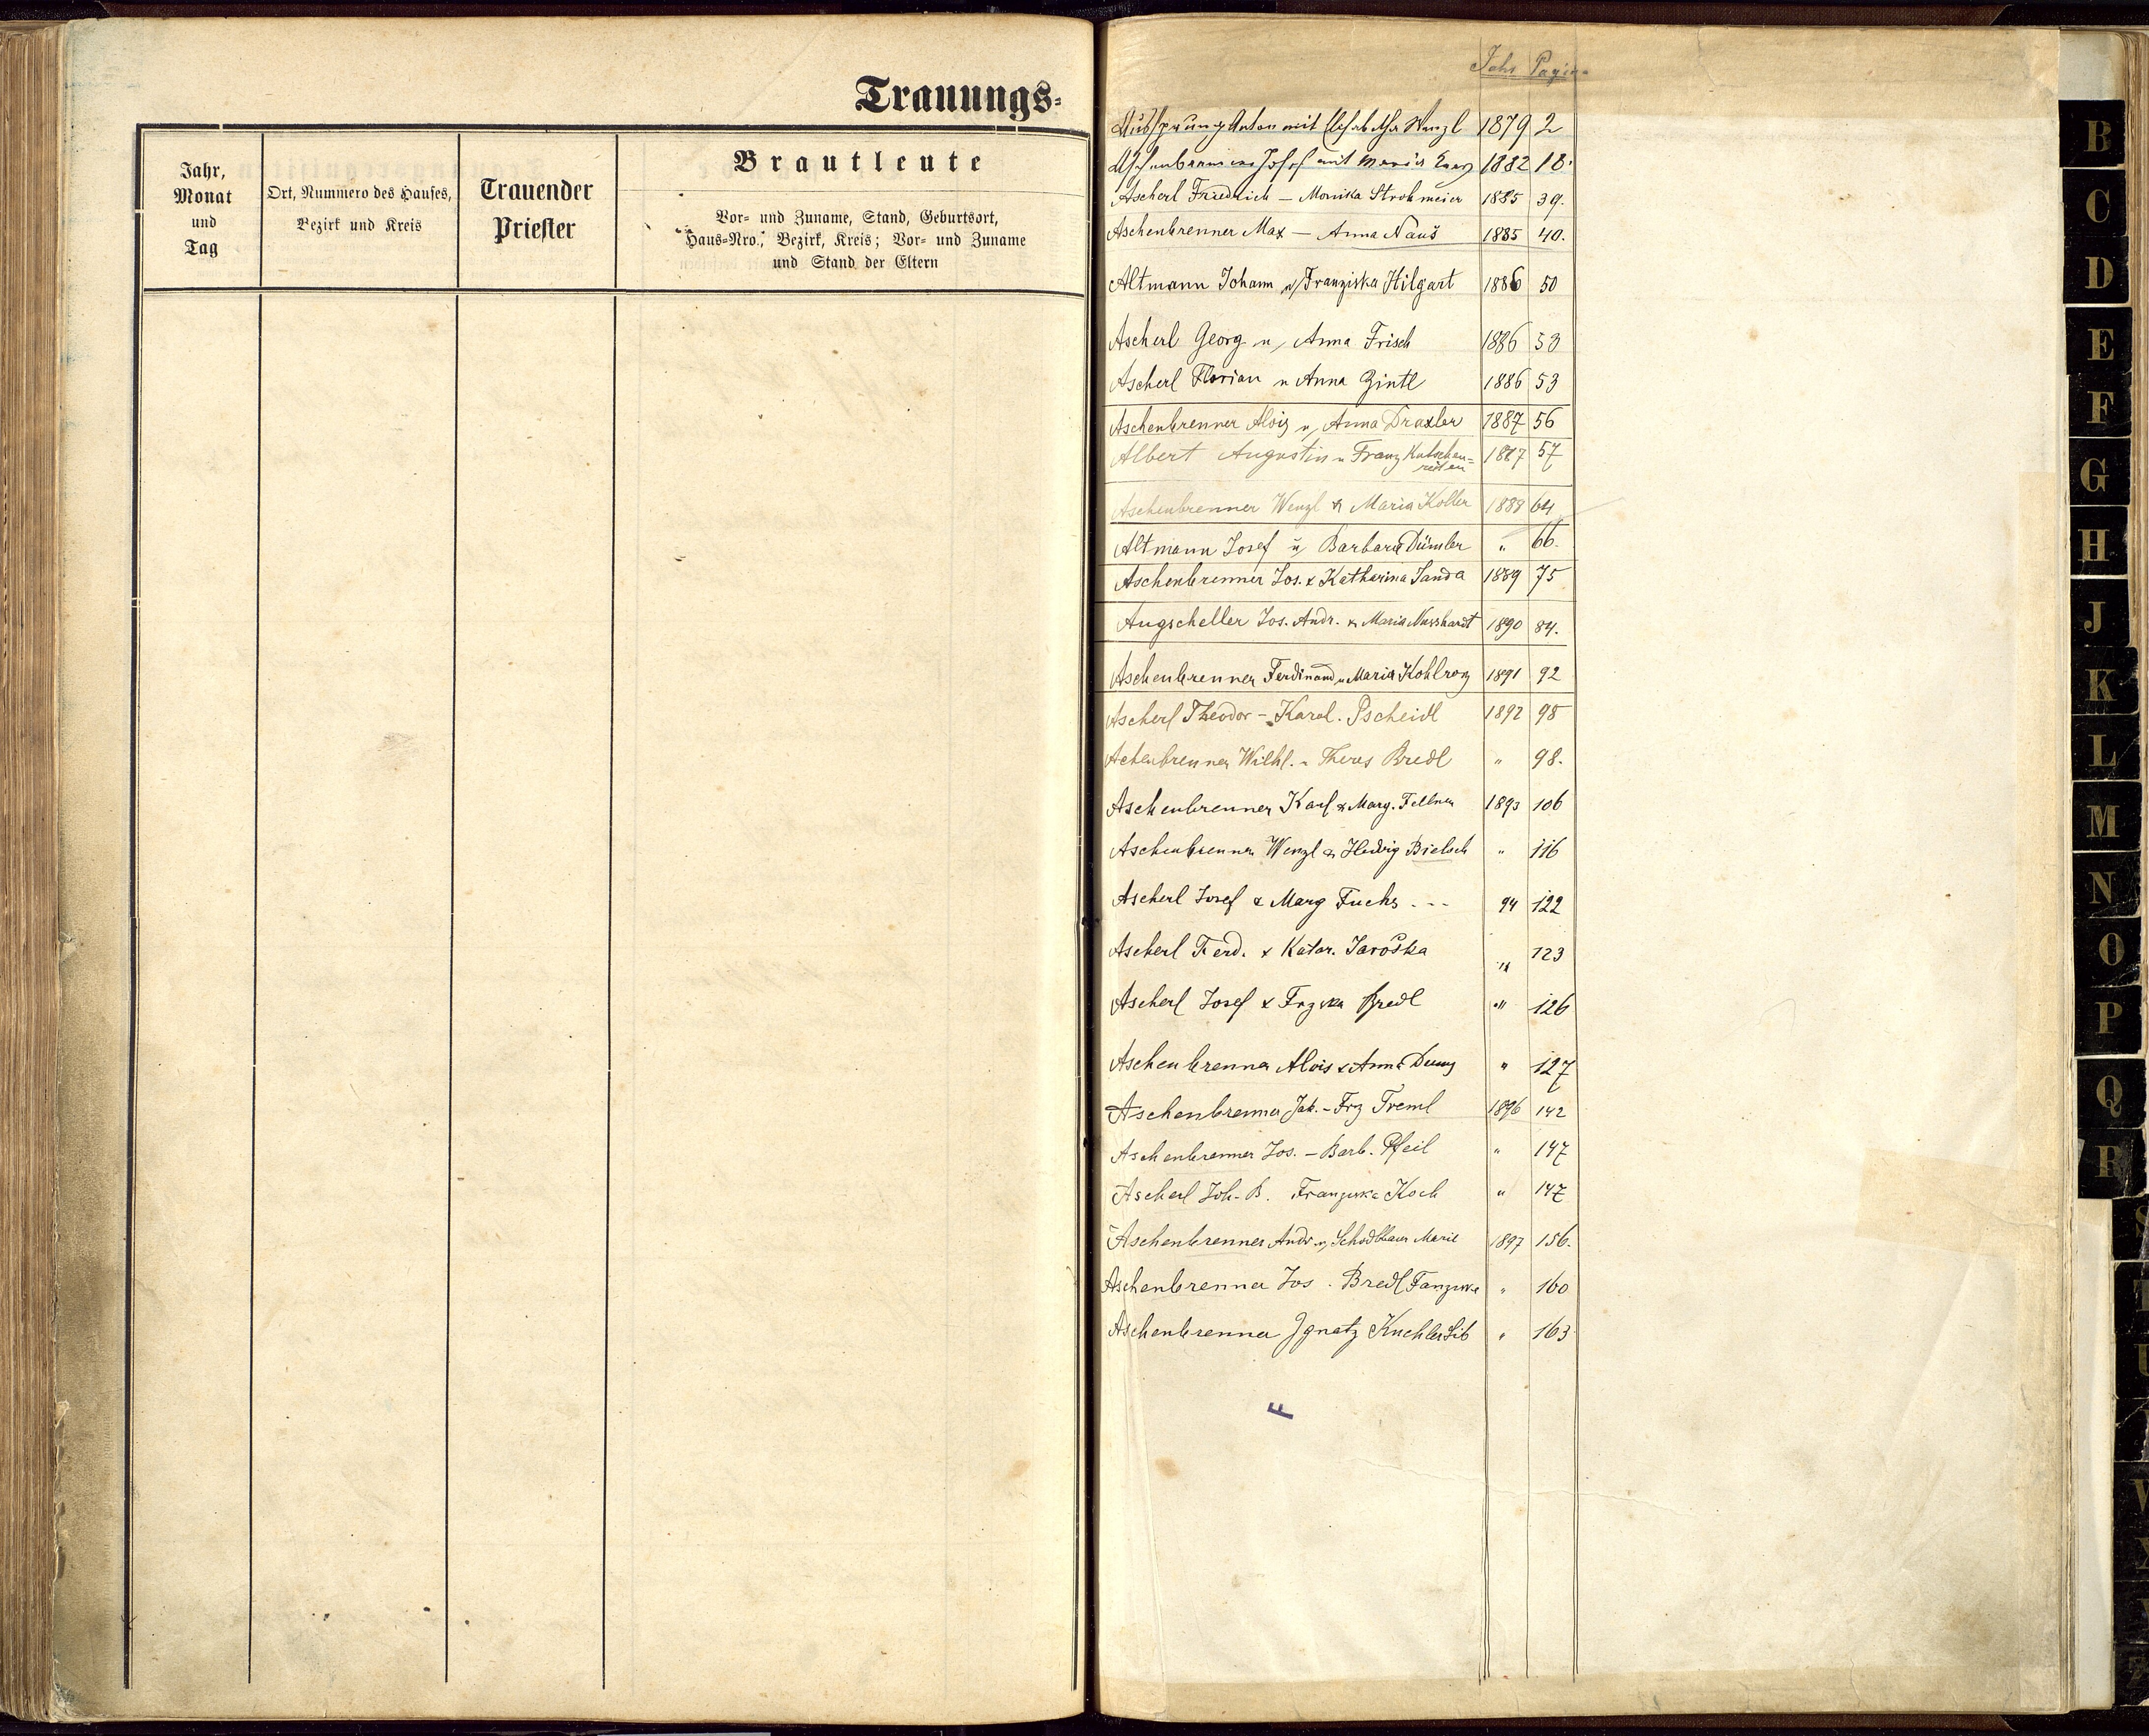 Trauungs-
Jahr,
Monat
und
Tag
Ort, Nummero des Hauses,
Bezirk und Kreis
Trauender
Priester
Brautleute
Vor- und Zuname, Stand, Geburtsort,
Haus-Nro., Bezirk, Kreis; Vor- und Zuname
und Stand der Eltern
Jahr Pagina
Aubsprung Anton mit Elisabetha Wenzl 1879 2
Aschenbrenner Josef mit Maria 1882 18.
Ascherl Friedrich — Monika Strohmeier 1885 39.
Aschenbrenner Max — Anna Nauš 1885 40.
Altmann Johann u/ Franziska Hilgart 1886 50
Ascherl Georg u, Anna Frisch 1886 53
Ascherl Florian u Anna Zintl 1886 53
Aschenbrenner Alois u, Anna Draxler 1887 56
Albert Augustin u Franz Kutschen= 1887 57
reiter
Aschenbrenner Wenzl & Maria Koller 1888 64
Altmann Josef u, Barbara Dümler " 66.
Aschenbrenner Jos. & Katharina Janda 1889 75
Augscheller Jos. Andr. & Maria Nusshardt 1890 84.
Aschenbrenner Ferdinand u Maria Kohlros 1891 92
Ascherl Theodor - Karol. Pscheidl 1892 95
Achenbrenner Wilhl. - Theres Bredl " 98.
Aschenbrenner Karl & Marg. Fellner 1893 106
Aschenbrenner Wenzl & Hedwig Bielsch " 116
Ascherl Josef & Marg Fuchs - - - 94 122
Ascherl Ferd. & Katar. Jaroška " 123
Ascherl Josef & Frzska Bredl " 126
Aschenbrenner Alois & Anna " 127
Aschenbrenner Jak. - Frz Treml 1896 142
Aschenbrenner Jos. - Barb. Pfeil " 147
Ascherl Joh. B. Franziska Koch " 147
Aschenbrenner Andr. u, Schödlbauer Marie 1897 156.
Aschenbrenner Jos . Bredl Fanziska " 160
Aschenbrenner Ignatz Kuchler Sib " 163
F
B
C
D
E
F
G
H
J
K
L
M
N
O
P
Q
R
S
T
U
W
Z